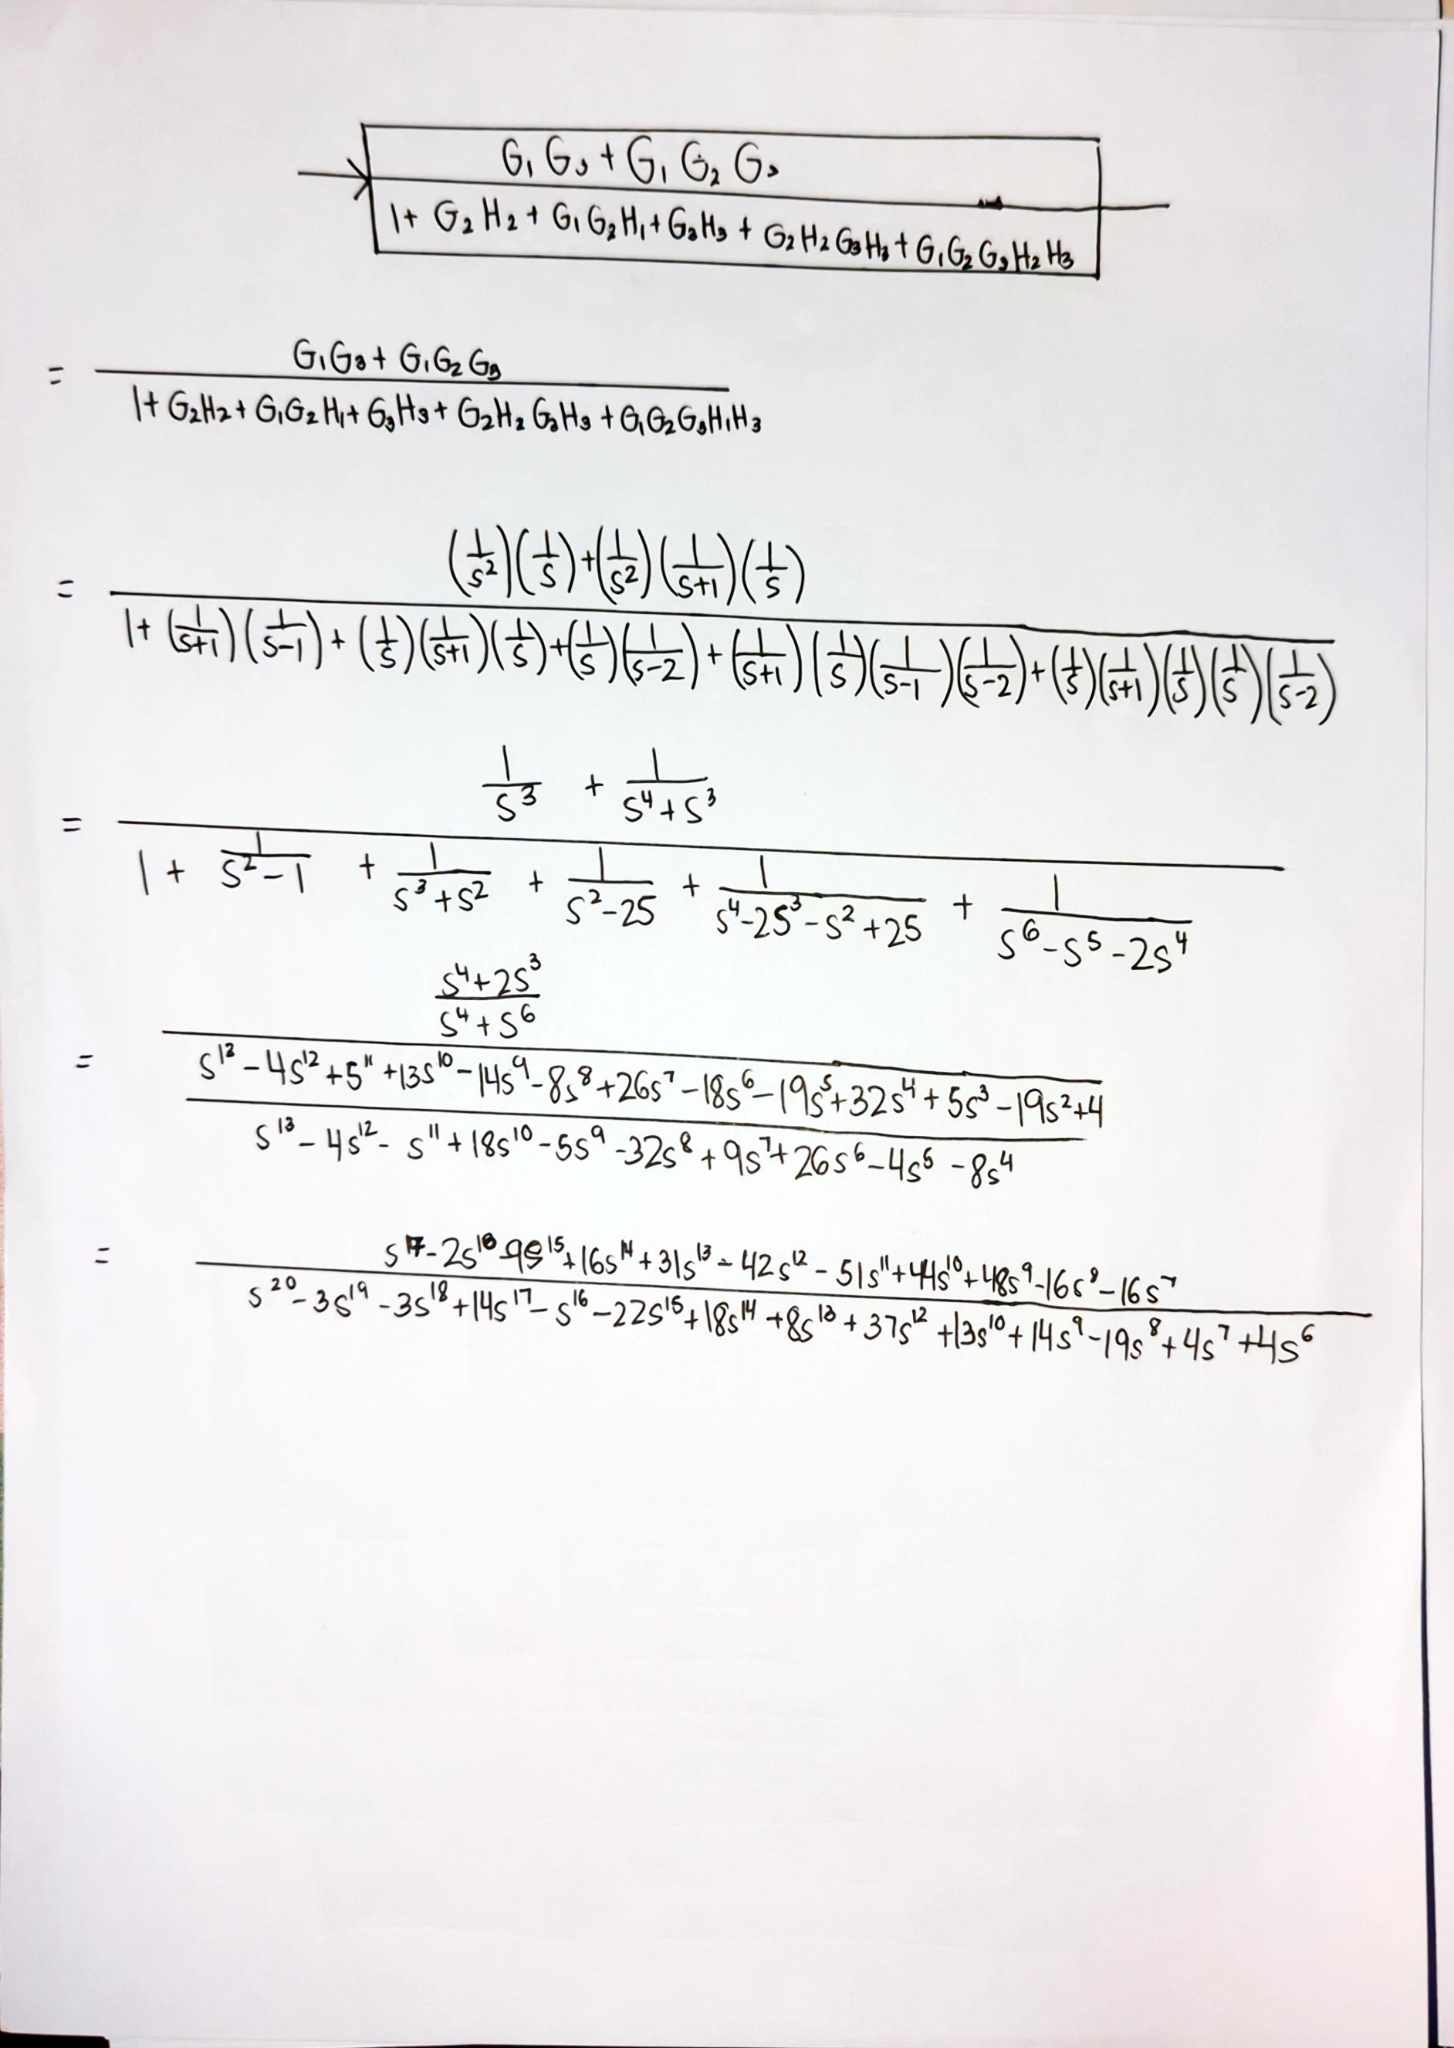 G₁G₃ + G₁G₂G₃
1 + G₂H₂ + G₁G₂H₁ + G₃H₃ + G₂H₂G₃H₃ + G₁G₂G₃H₂H₃
G₁G₃ + G₁G₂G₃
=
1 + G₂H₂ + G₁G₂H₁ + G₃H₃ + G₂H₂G₃H₃ + G₁G₂G₃H₁H₃
(1/s²)(1/s) + (1/s²)(1/s+1)(1/s)
=
1 + (1/s+1)(1/s-1) + (1/s)(1/s+1)(1/s) + (1/s)(1/s-2) + (1/s+1)(1/s)(1/s-1)(1/s-2) + (1/s)(1/s+1)(1/s)(1/s)(1/s-2)
1/s³ + 1/s⁴+s³
=
1 + 1/s²-1 + 1/s³+s² + 1/s²-2s + 1/s⁴-2s³-s²+2s + 1/s⁶-s⁵-2s⁴
s⁴+2s³
s⁴+s⁶
=
s¹³ - 4s¹² + 5¹¹ + 13s¹⁰ - 14s⁹ - 8s⁸ + 26s⁷ - 18s⁶ - 19s⁵ + 32s⁴ + 5s³ - 19s² + 4
s¹³ - 4s¹² - s¹¹ + 18s¹⁰ - 5s⁹ - 32s⁸ + 9s⁷ + 26s⁶ - 4s⁵ - 8s⁴
=
s¹⁷ - 2s¹⁶ - 9s¹⁵ + 16s¹⁴ + 31s¹³ - 42s¹² - 51s¹¹ + 44s¹⁰ + 48s⁹ - 16s⁸ - 16s⁷
s²⁰ - 3s¹⁹ - 3s¹⁸ + 14s¹⁷ - s¹⁶ - 22s¹⁵ + 18s¹⁴ + 8s¹³ + 37s¹² + 13s¹⁰ + 14s⁹ - 19s⁸ + 4s⁷ + 4s⁶